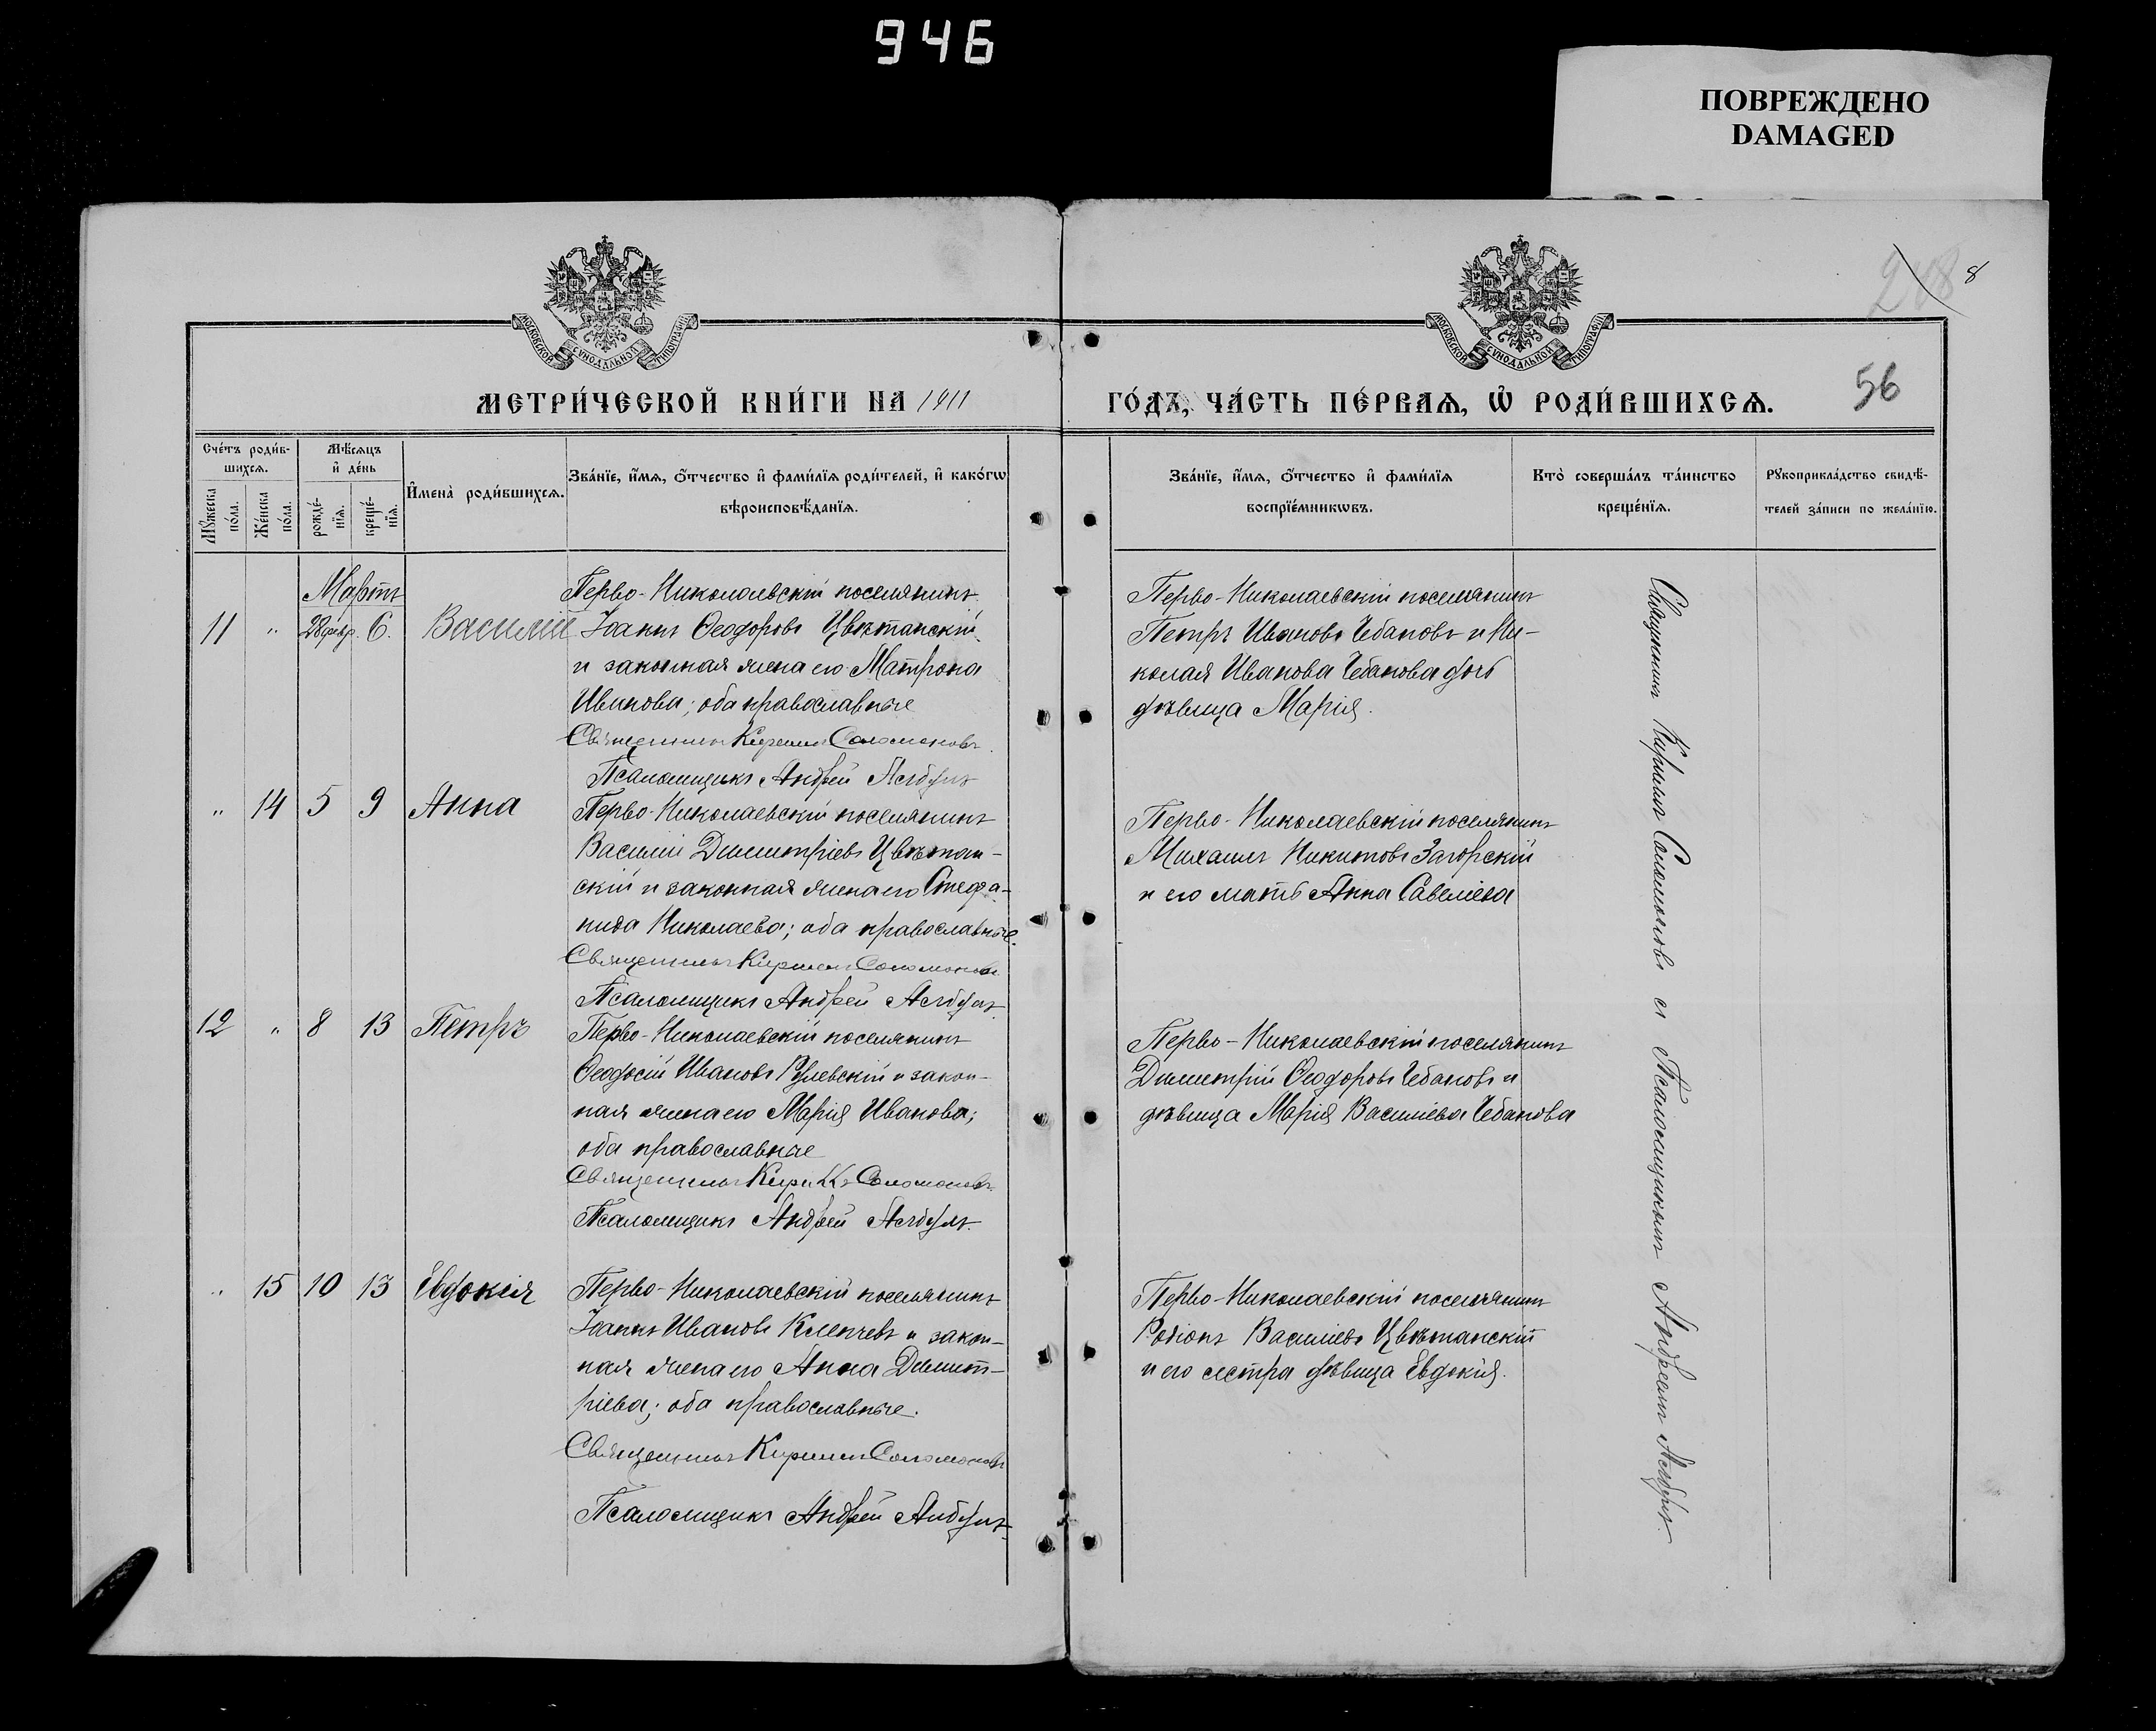 946
ПОВРЕЖДЕНО
DAMAGED
МОСКОВСКОЙ СѴНОДАЛЬНОЙ ТИПОГРАФІИ
МОСКОВСКОЙ СѴНОДАЛЬНОЙ ТИПОГРАФІИ
8
56
МЕТРИ́ЧЕСКОЙ КНИ́ГИ НА 1911
ГО́ДЪ, ЧА́СТЬ ПЕ́РВАѦ, Ѡ҆ РОДИ́ВШИХСѦ.
Сче́тъ роди́в-
шихсѧ.
Мꙋ́жеска по́ла.
Же́нска по́ла.
Мѣ́сѧцъ
и҆ де́нь
рожде́-
нїѧ.
креще́-
нїѧ.
И҆мена̀ роди́вшихсѧ.
Зва́нїе, и҆́мѧ, ѻ҆́тчество и҆ фами́лїѧ роди́телей, и҆ како́гѡ
вѣроисповѣ́данїѧ.
Зва́нїе, и҆́мѧ, ѻ҆́тчество и҆ фами́лїѧ
воспрїе́мникѡвъ.
Кто̀ соверша́лъ та́инство
креще́нїѧ.
Рꙋкоприкла́дство свидѣ́-
телей за́писи по жела́нїю.
Мартъ
11 " 28 февр. 6. Василій
Перво-Николаевскій поселянинъ
Іоаннъ Ѳеодоровъ Цвѣтанскій
и законная жена его Матрона
Иванова; оба православные
Священникъ Кириллъ Соломоновъ.
Псаломщикъ Андрей
Перво-Николаевскій поселянинъ
Петръ Ивановъ Чебановъ и Ни-
колая Иванова Чебанова дочь
дѣвица Марія.
" 14 5 9 Анна
Перво-Николаевскій поселянинъ
Василій Димитріевъ Цвѣтан-
скій и законная жена его Стефа-
нида Николаева; оба православные.
Священникъ Кириллъ Соломоновъ.
Псаломщикъ Андрей
Перво-Николаевскій поселянинъ
Михаилъ Никитовъ Загорскій
и его мать Анна Савеліева
12 " 8 13 Петръ
Перво-Николаевскій поселянинъ
Ѳеодосій Ивановъ и закон-
ная жена его Марія Иванова;
оба православные
Священникъ Кириллъ Соломоновъ.
Псаломщикъ Андрей
Перво-Николаевскій поселянинъ
Димитрій Ѳеодоровъ Чебановъ и
дѣвица Марія Василіева Чебанова
" 15 10 13 Евдокія
Перво-Николаевскій поселянинъ
Іоаннъ Ивановъ Клепчевъ и закон-
ная жена его Анна Димит-
ріева; оба православные.
Священникъ Кириллъ Соломоновъ
Псаломщикъ Андрей
Перво-Николаевскій поселянинъ
Родіонъ Василіевъ Цвѣтанскій
и его сестра дѣвица Евдокія.
Священникъ Кириллъ Соломоновъ съ Псаломщикомъ Андреемъ